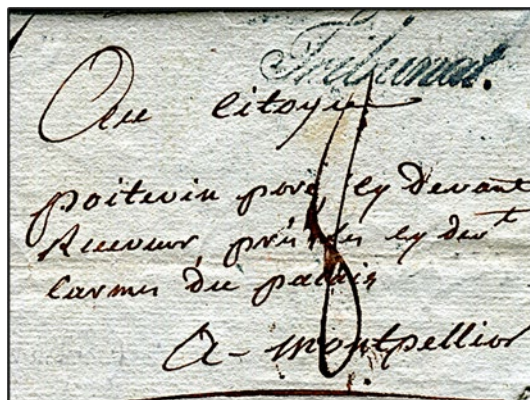 Tribunat.
Au citoyen
poitevin pere cy devant
Receveur, prés les cy devt
carmes du palais
A - montpellier